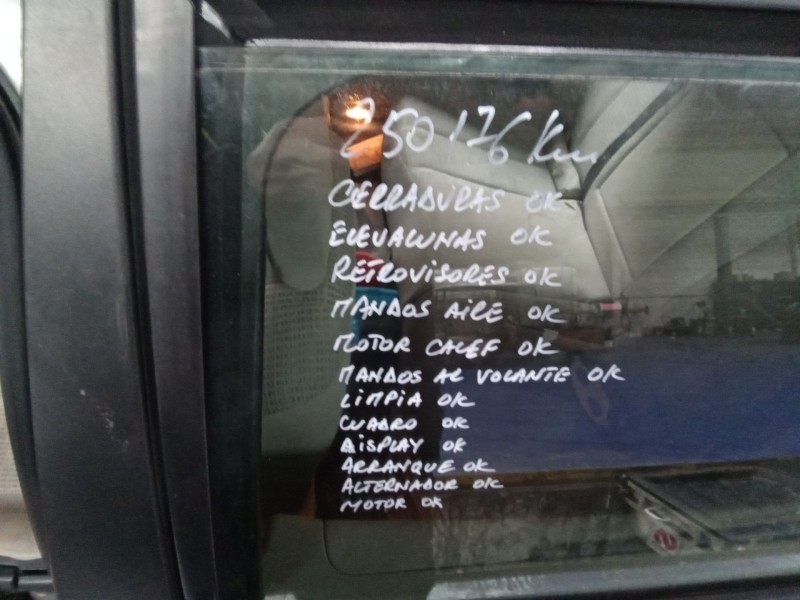 250 176 Km
CERRADURAS OK
ELEVALUNAS OK
RETROVISORES OK
MANDOS AIRE OK
MOTOR CALEF OK
MANDOS AL VOLANTE OK
LIMPIA OK
CUADRO OK
DISPLAY OK
ARRANQUE OK
ALTERNADOR OK
MOTOR OK